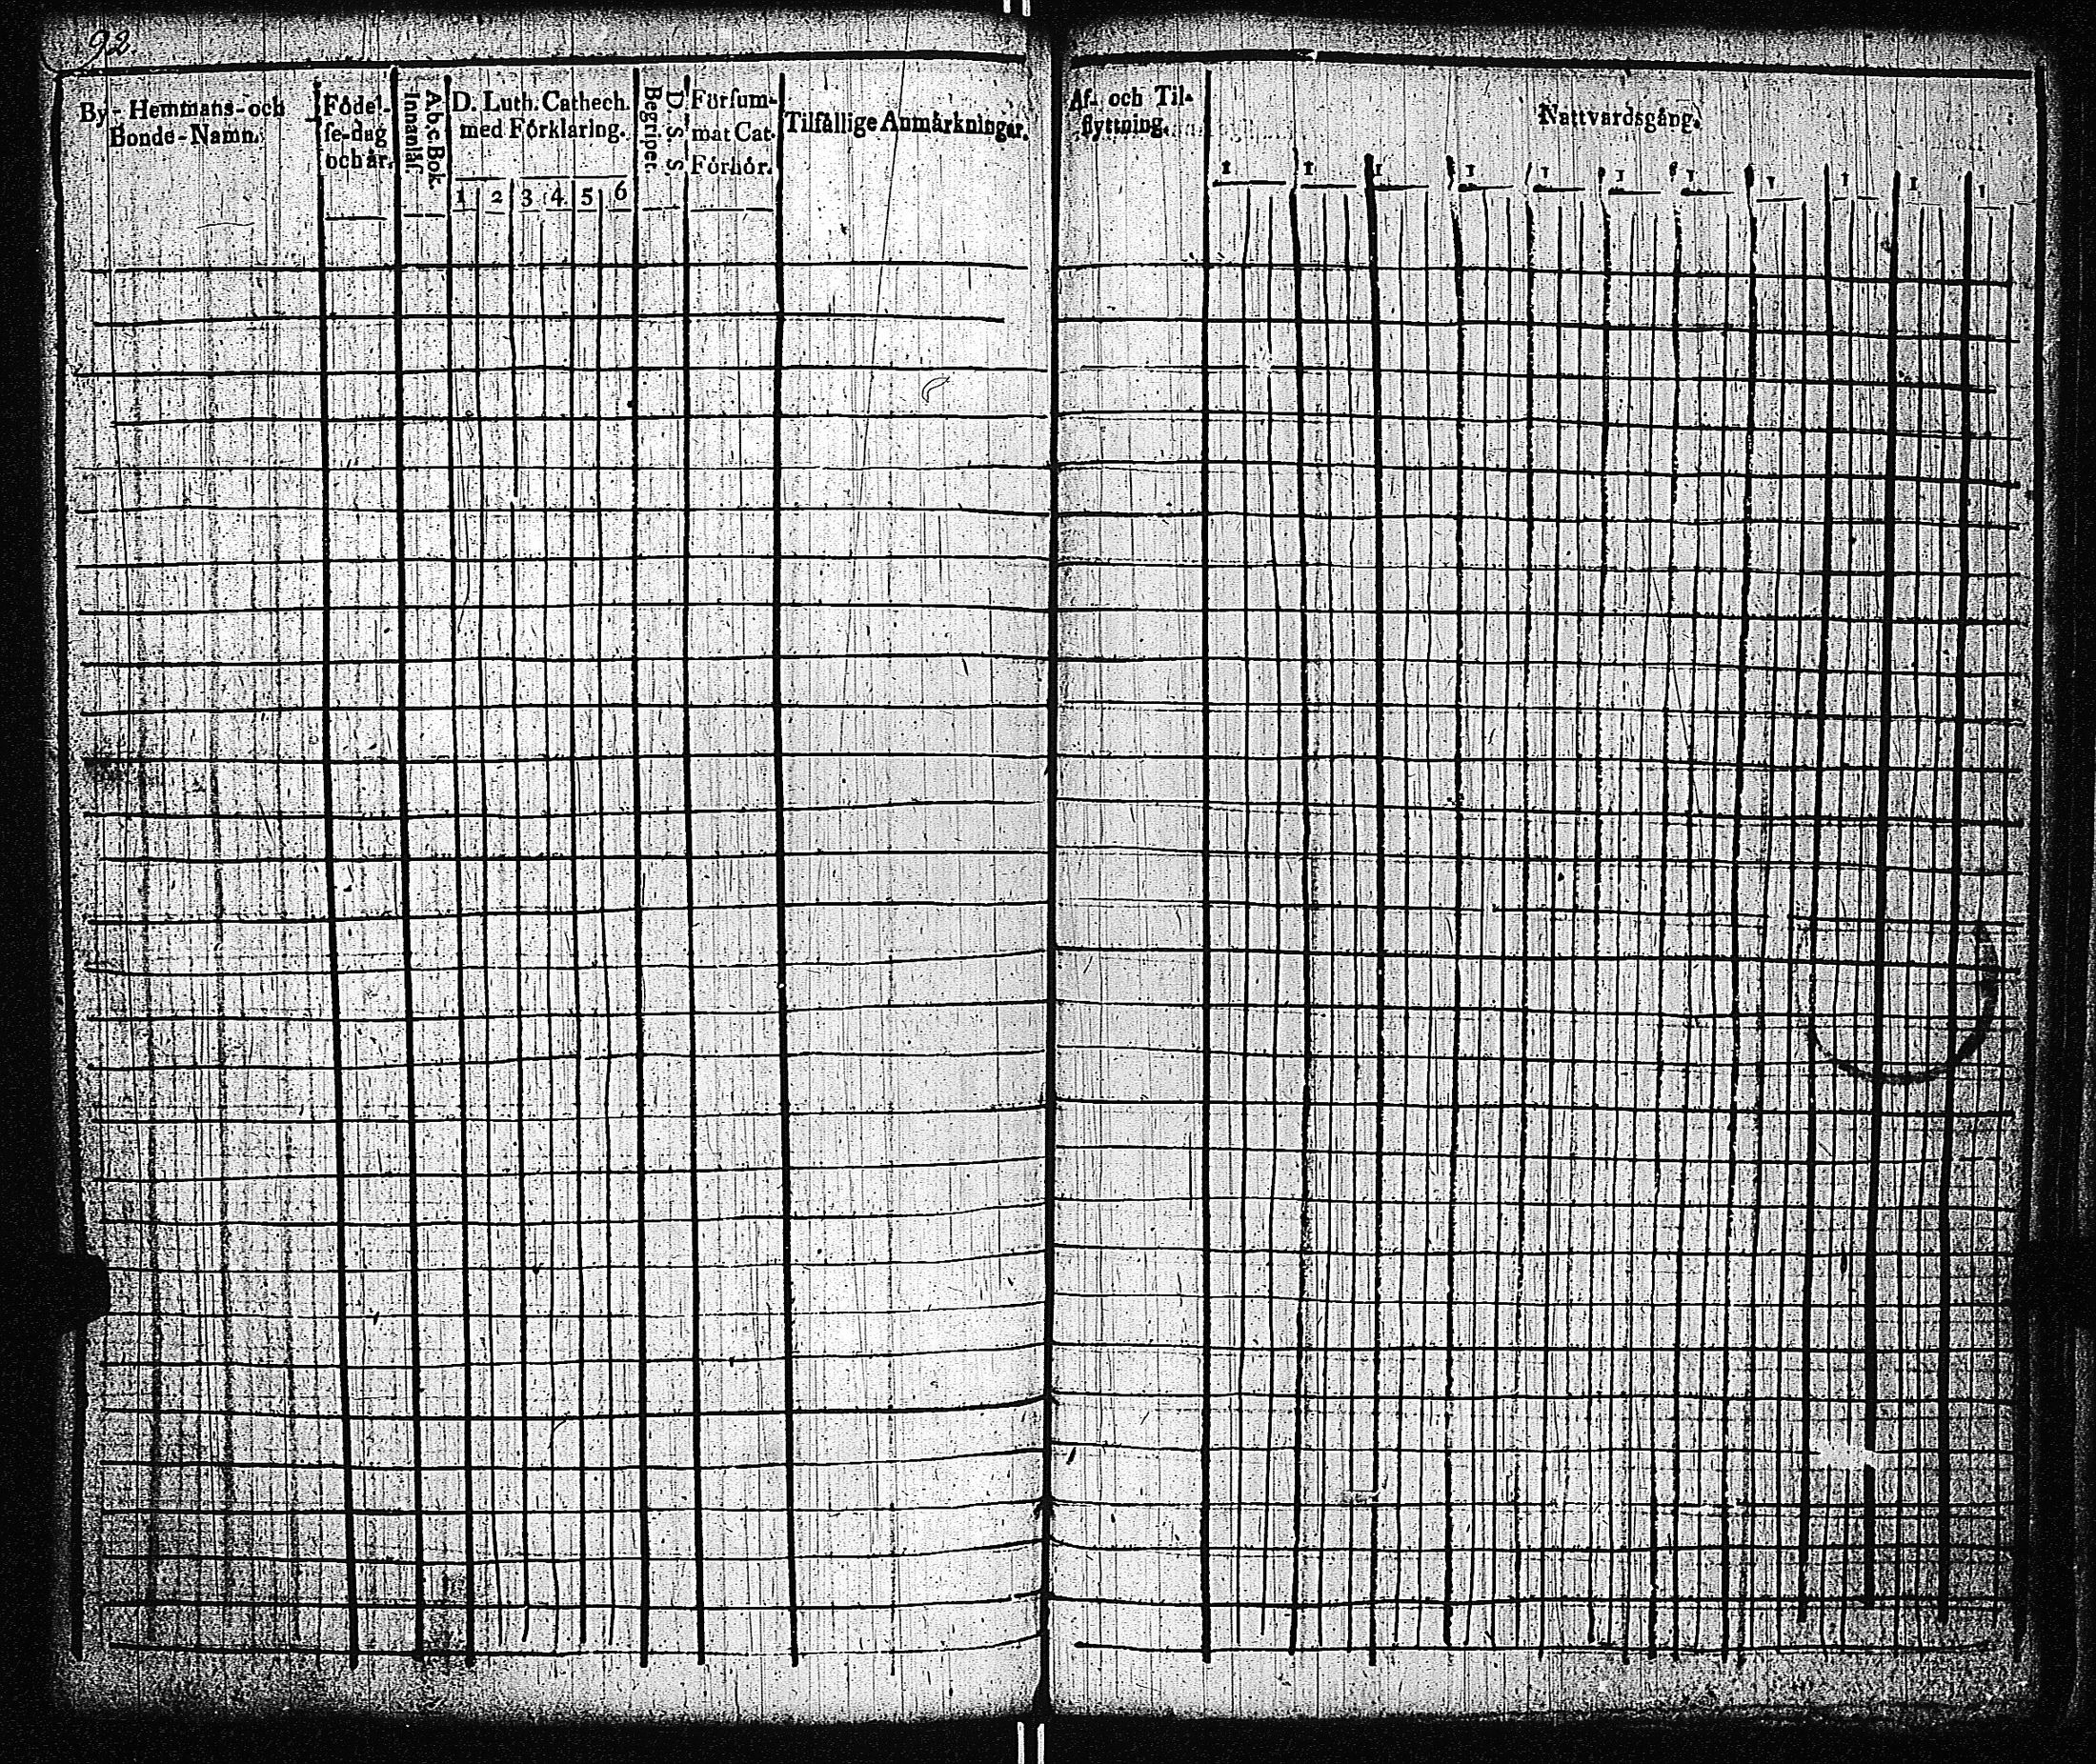 92
By-Hemmans-och
Bonde-Namn.
Födel-
se-dag
och år.
A.b.c Bok.
Innanläs.
D. Luth. Cathech.
med Förklaring.
1 2 3 4 5 6
D. S. S.
Begripet.
Försum-
mat Cat.
Förhör.
Tilfällige Anmärkningar.
Af- och Til-
flyttning.
Nattvardsgång.
1 1 1 1 1 1 1 1 1 1 1